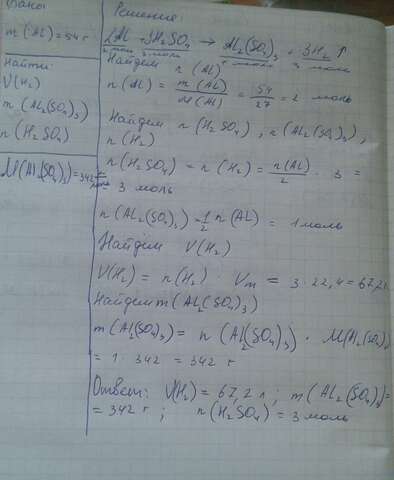 Дано:
m(Al) = 54 г
Найти:
V(H₂)
m(Al₂(SO₄)₃)
n(H₂SO₄)
M(Al₂(SO₄)₃) = 342 г/моль
Решение:
2Al + 3H₂SO₄ → Al₂(SO₄)₃ + 3H₂↑
2 моль 3 моль 1 моль 3 моль
Найдём n(Al)
n(Al) = m(Al)/M(Al) = 54/27 = 2 моль
Найдём n(H₂SO₄), n(Al₂(SO₄)₃),
n(H₂)
n(H₂SO₄) = n(H₂) = n(Al)/2 · 3 =
3 моль
n(Al₂(SO₄)₃) = 1/2 n(Al) = 1 моль
Найдём V(H₂)
V(H₂) = n(H₂) · Vm = 3 · 22,4 = 67,2 л
Найдём m(Al₂(SO₄)₃)
m(Al₂(SO₄)₃) = n(Al₂(SO₄)₃) · M(Al₂(SO₄)₃)
= 1 · 342 = 342 г
Ответ: V(H₂) = 67,2 л; m(Al₂(SO₄)₃) =
= 342 г; n(H₂SO₄) = 3 моль